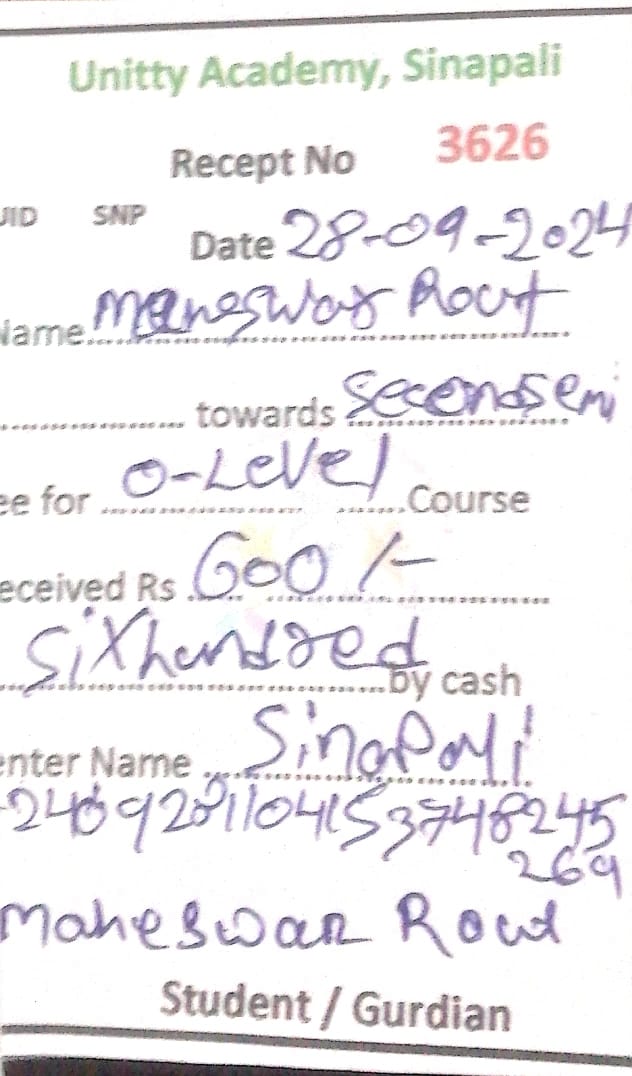 Unitty Academy, Sinapali
Recept No 3626
UID SNP
Date 28-09-2024
Name Maneswar Rout
towards Second Semi
ee for O-Level Course
eceived Rs 600/-
Sixhundred by cash
enter Name Sinapali
269
Maheswar Rout
Student / Gurdian